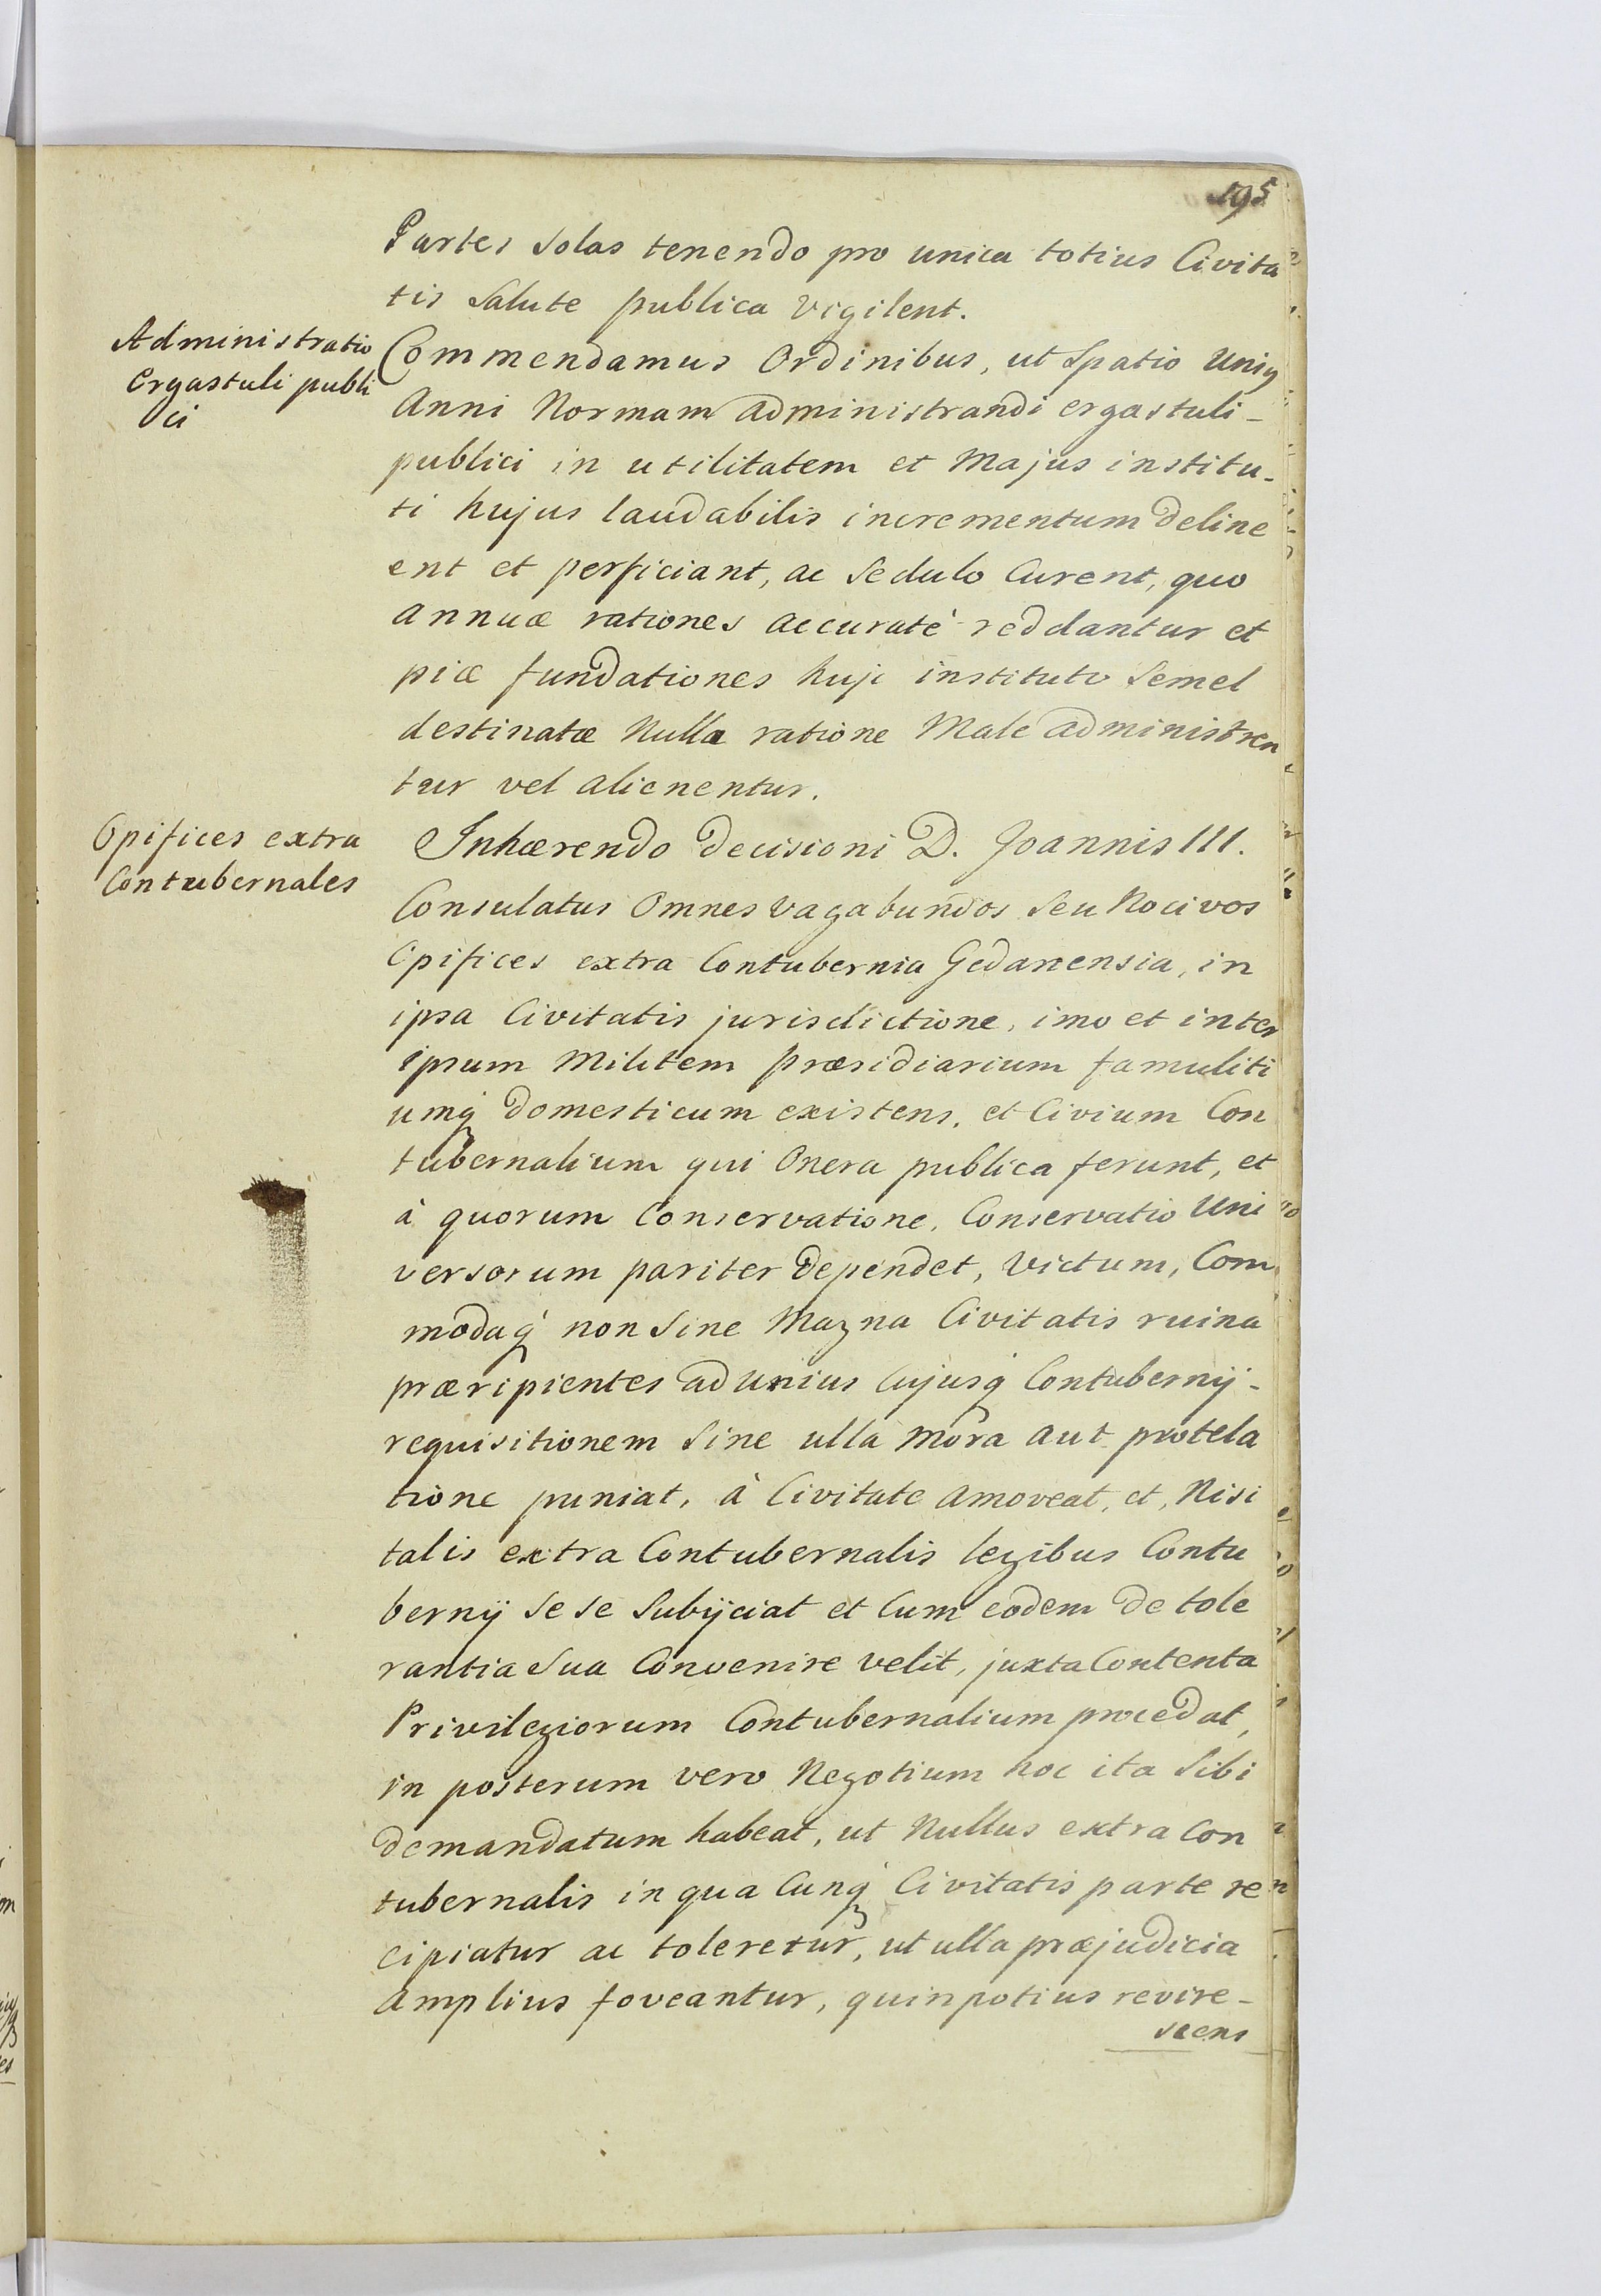 195
Partes solas tenendo pro unica totius Civita
tis Salute publica vigilent.
Administratio
Ergastuli publi
ci
Commendamus Ordinibus, ut Spatio Uniꝰ
Anni Normam administrandi ergastuli-
publici in utilitatem et Majus institu-
ti hujus laudabilis incrementum deline
ent et perficiant, ac Sedulo Curent, quo
annuæ rationes accuratè reddantur et
piæ fundationes huic instituto Semel
destinatæ Nulla ratione Male administren
tur vel alienentur.
Opifices extra
Contubernales
Inhærendo decisioni D. Joannis III.
Consulatus Omnes vagabundos Seu Nocivos
Opifices extra Contubernia Gedanensia, in
ipsa Civitatis jurisdictione, imo et inter
ipsum Militem præsidiarium famuliti
umq; domesticum existens, et Civium Con
tubernalium qui Onera publica ferunt, et
à quorum Conservatione, Conservatio Uni
versorum pariter dependet, Victum, Com
modaq; non Sine Magna Civitatis ruina
præripientes ad unius Cujusq; Contubernij-
requisitionem Sine ulla mora aut protela
tione puniat, à Civitate amoveat, et, Nisi
talis extra Contubernalis legibus Contu
bernij Se se Subijciat et Cum eodem de tole
rantia Sua Convenire velit, juxta Contenta
Privilegiorum Contubernalium procedat,
in posterum vero Negotium hoc ita Sibi
demandatum habeat, ut Nullus extra Con
tubernalis in qua Cunq; Civitatis parte re
cipiatur ac toleretur, ut ulla præjudicia
amplius foveantur, quin potius revire-
scens